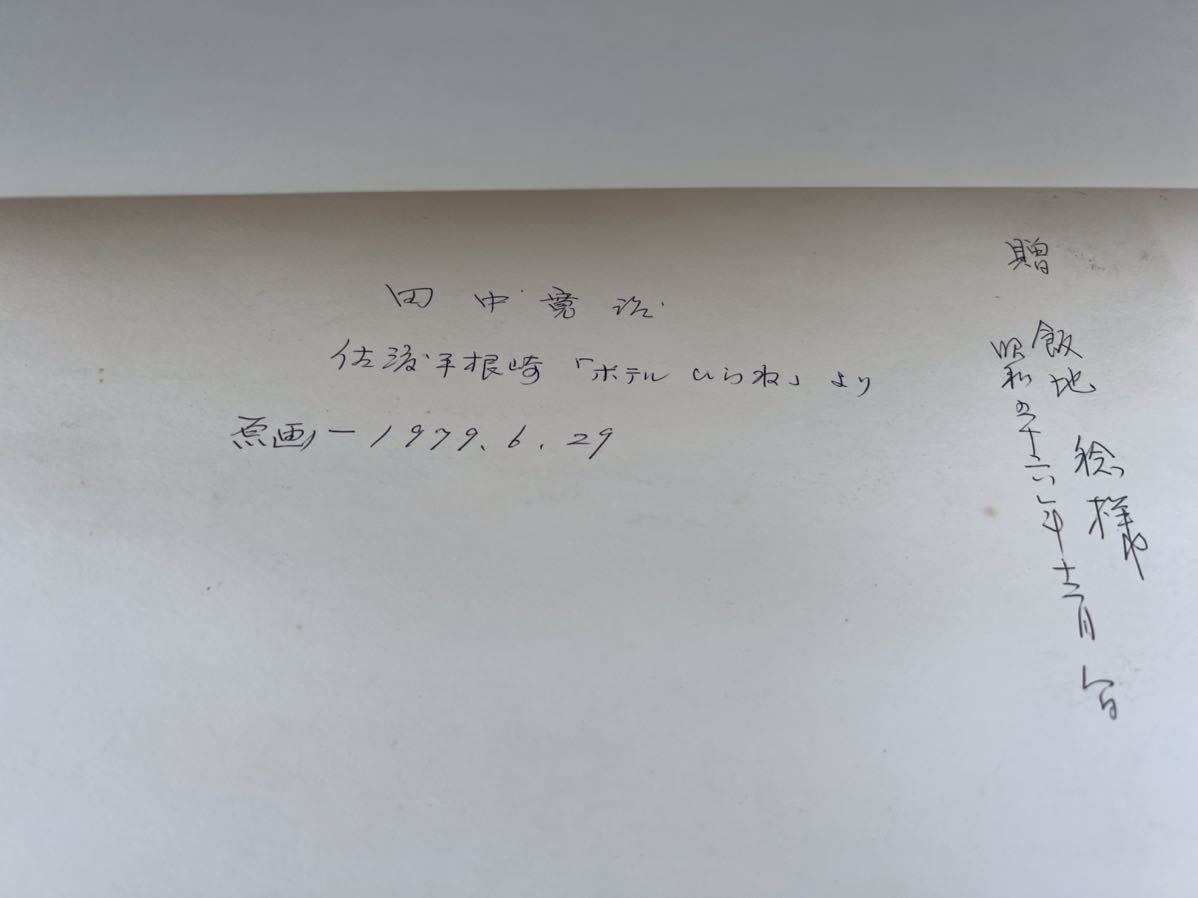 田中寛治
佐渡平根崎「ホテルひらね」より
原画ー1979.6.29
贈 飯地 稔様
昭和五十六年十二月